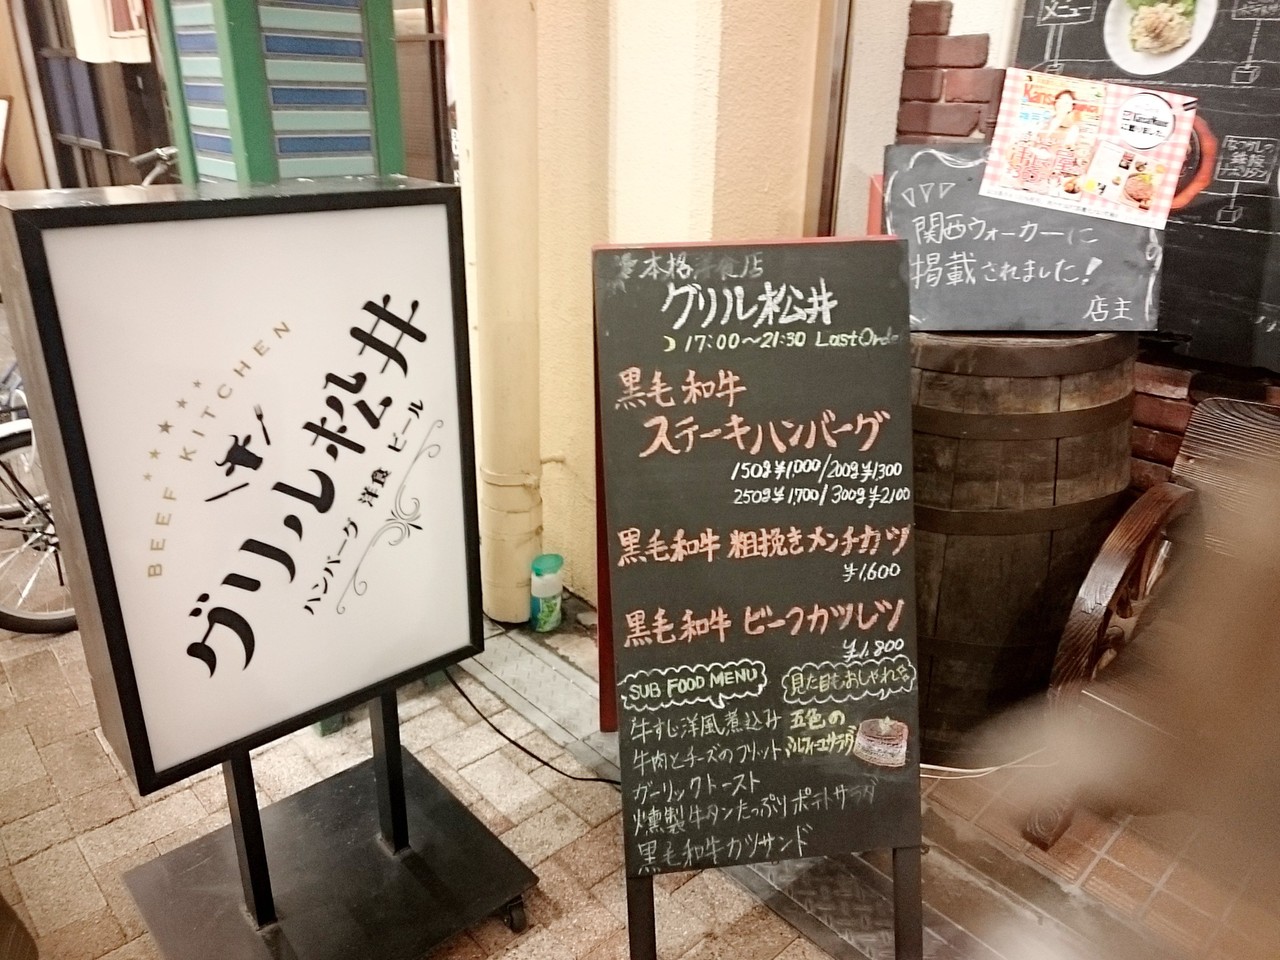 BEEF KITCHEN
グリル松井
ハンバーグ 洋食 ビール
本格洋食店
グリル松井
17:00〜21:30 Last Orde
黒毛和牛
ステーキハンバーグ
150g¥1,000/200g¥1,300
250g¥1,700/300g¥2,100
黒毛和牛 粗挽きメンチカツ
¥1,600
黒毛和牛 ビーフカツレツ
¥1,800
SUB FOOD MENU
見た目もおしゃれ
牛すじ洋風煮込み
牛肉とチーズのフリット
ガーリックトースト
燻製牛タンたっぷりポテトサラダ
黒毛和牛カツサンド
五色の
ミルフィーユサラダ
関西ウォーカーに
掲載されました!
店主
メニュー
なつかしの
鉄板
ナポリタン